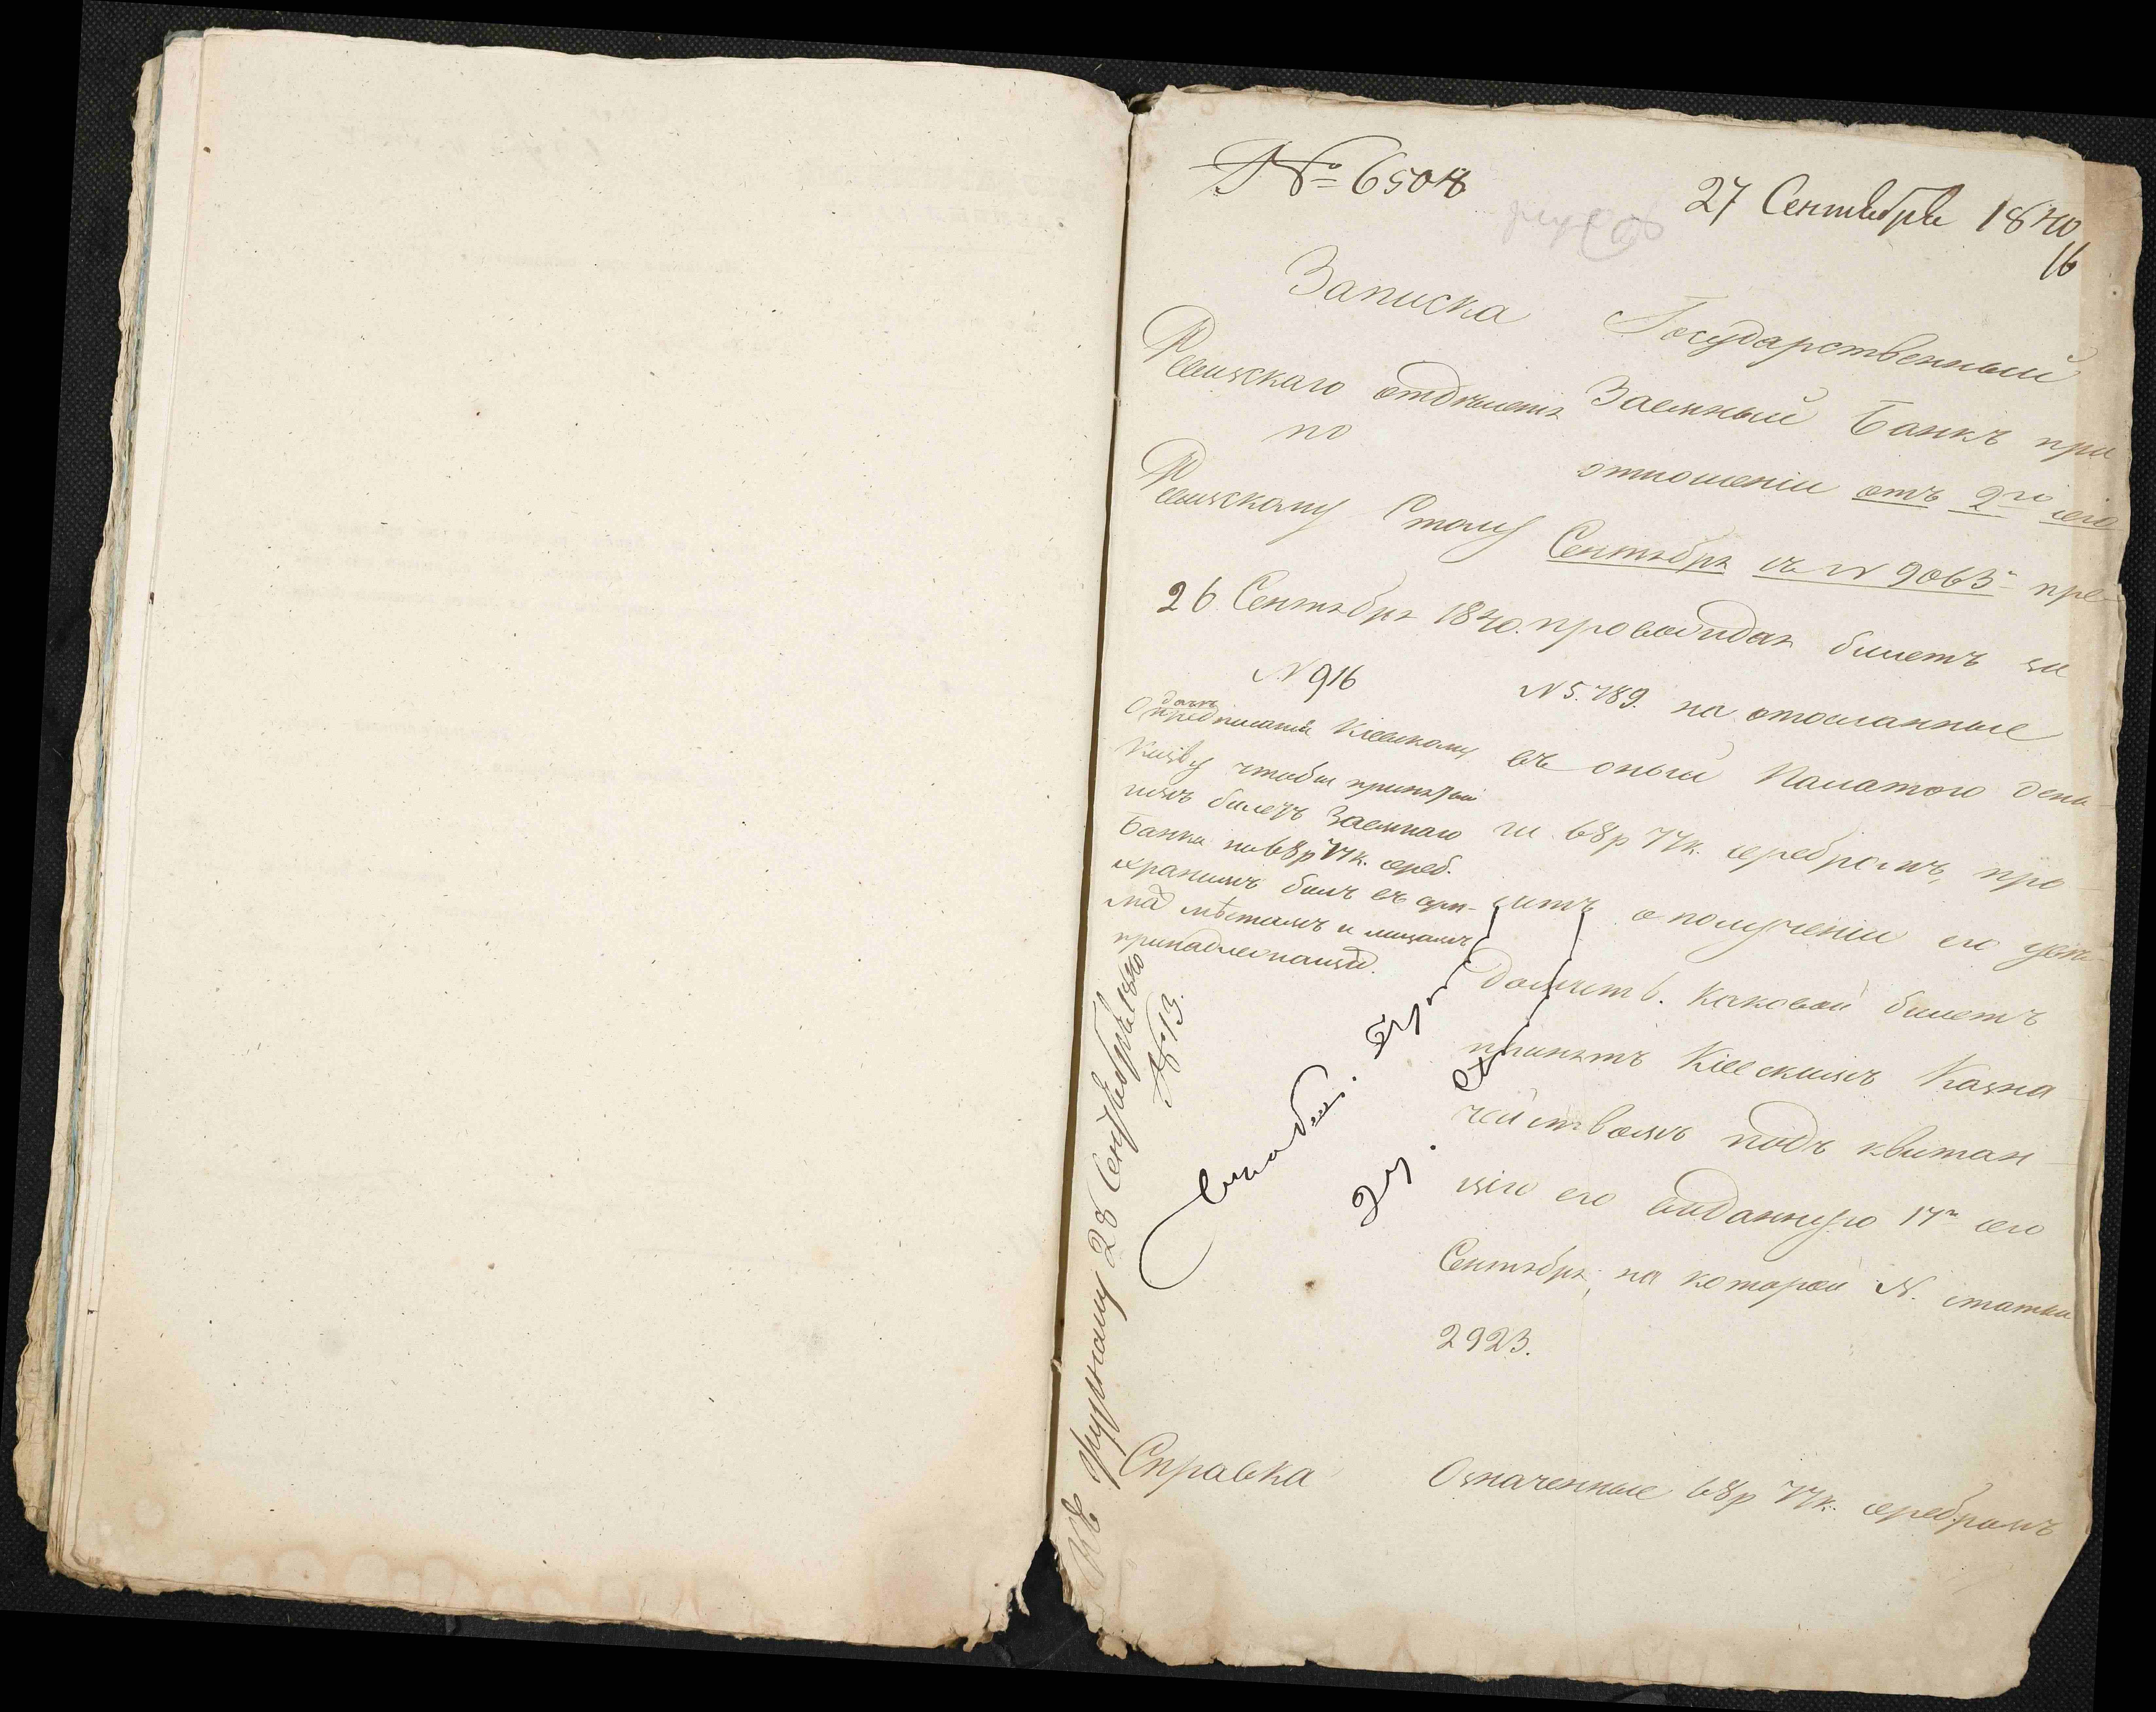 № 6508
27 Сентября 1840
16
Записка
Ревизскаго отдѣленія
по
Ревизскому Столу
26 Сентября 1840.
№ 916
Государственный
Заемный Банкъ при
отношеніи отъ 2го сего
Сентября за № 9063 пре-
провождая билетъ за
№ 5.789. на отосланные
въ оный Палатою день-
ги 68р 77к. серебромъ, про-
ситъ о полученіи его увѣ-
домить. Каковой билетъ
принятъ Кіевскимъ Казна-
чействомъ подъ квитан-
цію его выданную 17го сего
Сентября, на которой №. статьи
2923.
дать
предписаніе Кіевскому
Казву чтобы принятый
имъ билетъ Заемнаго
Банка на 68р 77к. сереб.
хранимъ былъ въ сум-
мѣстамъ и лицамъ
принадлежащей.
28 Сентября 1840
№ 13.
Справка
Означенные 68р 77к. серебромъ